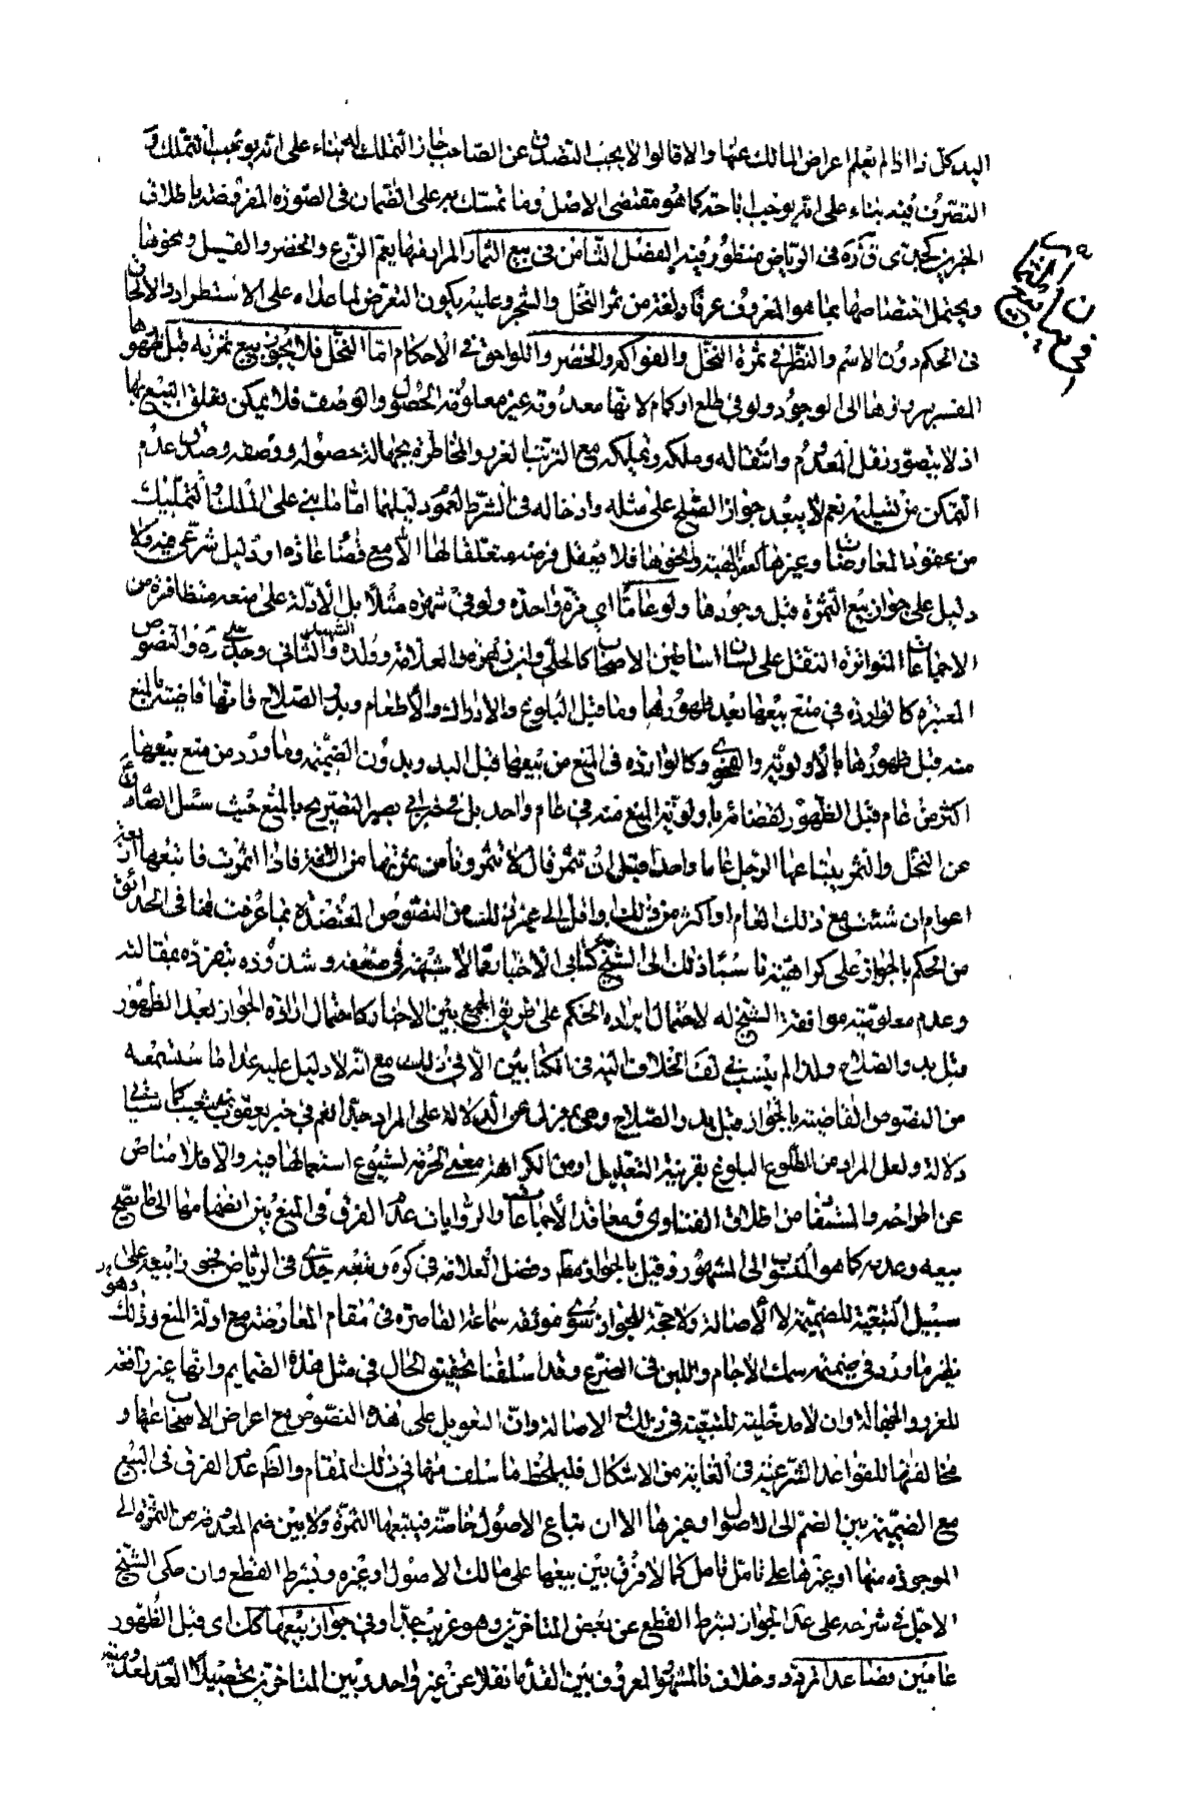 اليد كل ذا اذا لم يعلم اعراض المالك عنها والا قالوا لا يجب التصدق عن الصاحب جاز التملك له بناء على انه يوجب التملك و
التصرف فيه بناء على انه يوجب اباحته كما هو مقتضى الاصل وما تمسك به على الضمان فى الصورة المفروضة باطلاق
الخبر كجدى قده فى الرياض منظور فيه الفصل الثامن فى بيع الثمار المراد منها يعم الزرع والخضر والقبيل ونحوها
ويحتمل اختصاصها بما هو المعروف عرفا ولغة من ثمر النخل والشجر وعليه يكون التعرض لما عداه على الاستطراد والالحاق
فى الحكم دون الاسم والنظر فى ثمرة النخل والفواكه والخضر واللواحق فى الاحكام اما النخل فلا يجوز بيع ثمرته قبل ظهورها
المفسر ببروزها الى الوجود ولو فى طلع او كمام لانها معدومة غير معلومة الحصول والوصف فلا يمكن تعلق البيع بها
اذ لا يتصور نقل المعدوم وانتقاله وملكه وتمليكه مع الترتب الغرر والمخاطرة بجهالة حصوله ووصفه وصدق عدم
التمكن من تسليمه نعم لا يبعد جواز الصلح على مثله وادخاله فى الشرط لعموم دليلهما اما ما بنى على الملك التمليك
من عقود المعاوضات وغيرها كعقد الهبة ونحوها فلا يعقل فرضه متعلقا لها الا مع قضاء عادة او دليل شرعى فيه ولا
دليل على جواز بيع الثمرة قبل وجودها ولو عاما اى مرة واحدة ولو فى شهره مثلا بل الادلة على منعه متظافرة من
الاجماعات المتواترة النقل على لسان اساطين الاصحاب كالحلى وابن زهرة والعلامة وولده والشهيد الثانى وجدى ره والنصوص
المعتبرة كالواردة فى منع بيعها بعد ظهورها وما قبل البلوغ والادراك والاطعام وبدو الصلاح فانها قاضية بالمنع
منه قبل ظهورها بالاولوية والفحوى وكالواردة فى المنع من بيعها قبل البدو بدون الضميمة وما ورد من منع بيعها
اكثر من عام قبل الظهور لقضائه باولوية المنع منه فى عام واحد بل فى خبر ابى بصير التصريح بالمنع حيث سئل الصادق
عن النخل والثمر يبتاعها الرجل عاما واحدا قبل ان تثمر قال لا تثمر وتامن ثمرتها من الافة فاذا اثمرت فابتعها اربعة
اعوام ان شئت مع ذلك العام او اكثر من ذلك او اقل الى غير ذلك من النصوص المعتضدة بما عرفت فما فى الحدائق
من الحكم بالجواز على كراهية ناسبا ذلك الى الشيخ فى كتابى الاخبار مما لا شبهة فى ضعفه وشذوذه بتفرده بمقالته
وعدم معلومية موافقة الشيخ له لاحتمال ايراده الحكم على طريق الجمع بين الاخبار كاحتمال ارادة الجواز بعد الظهور
قبل بدو الصلاح ولذا لم ينسب فى لف الخلاف اليه فى الكتابين الا فى ذلك مع انه لا دليل عليه عدا ما ستسمعه
من النصوص القاضية بالجواز قبل بدو الصلاح وهى بمعزل عن الدلالة على المراد جدا نعم فى خبر يعقوب بن شعيب
دلالة ولعل المراد من الطلوع البلوغ بقرينة التعليل او من الكراهة معنى الحرمة لشيوع استعمالها فيه والا فلا مناص
عن اطراحه والمستفاد من اطلاق الفتاوى ومعاقد الاجماعات والروايات عدم الفرق فى المنع بين انضمامها الى ما يصح
بيعه وعدمه كما هو المنسوب الى المشهور وقيل بالجواز فصل العلامة فى كره وتبعه جدى فى الرياض فجوزا بيعه على
سبيل التبعية للضميمة لا الاصالة ولا حجة للجواز سوى موثقة سماعة القاصرة فى مقام المعارضة مع ادلة المنع وذلك
نظير ما ورد فى ضميمة سمك الاجام واللبن فى الضرع وقد اسلفنا تحقيق الحال فى مثل هذه الضمايم وانها غير رافعة
للغرر والجهالة وان لا مدخلية للتبعية فى ذلك ولا الاصالة وان التعويل على هذه النصوص مع اعراض الاصحاب عنها و
مخالفتها للقواعد الشرعية فى الغاية من الاشكال فليلحظ ما سلف منا فى ذلك المقام والظ عدم الفرق فى البيع
مع الضميمة بين الضم الى الاصول او غيرها الا ان تباع الاصول خاصة فيتبعها الثمرة ولا بين ضم المعدومة من الثمرة الى
الموجودة منها او غيرها على تامل تامل كما لا فرق بين بيعها على مالك الاصول او غيره وبشرط القطع وان حكى الشيخ
الاجل فى شرحه على عد الجواز بشرط القطع عن بعض المتاخرين وهو غريب جدا وفى جواز بيعها كك اى قبل الظهور
عامين فصاعدا تردد وخلاف فالمشهور المعروف بين القدماء نقلا عن غير واحد وبين المتاخرين تحصيلا العدم لعدم
فى بيع الثمار